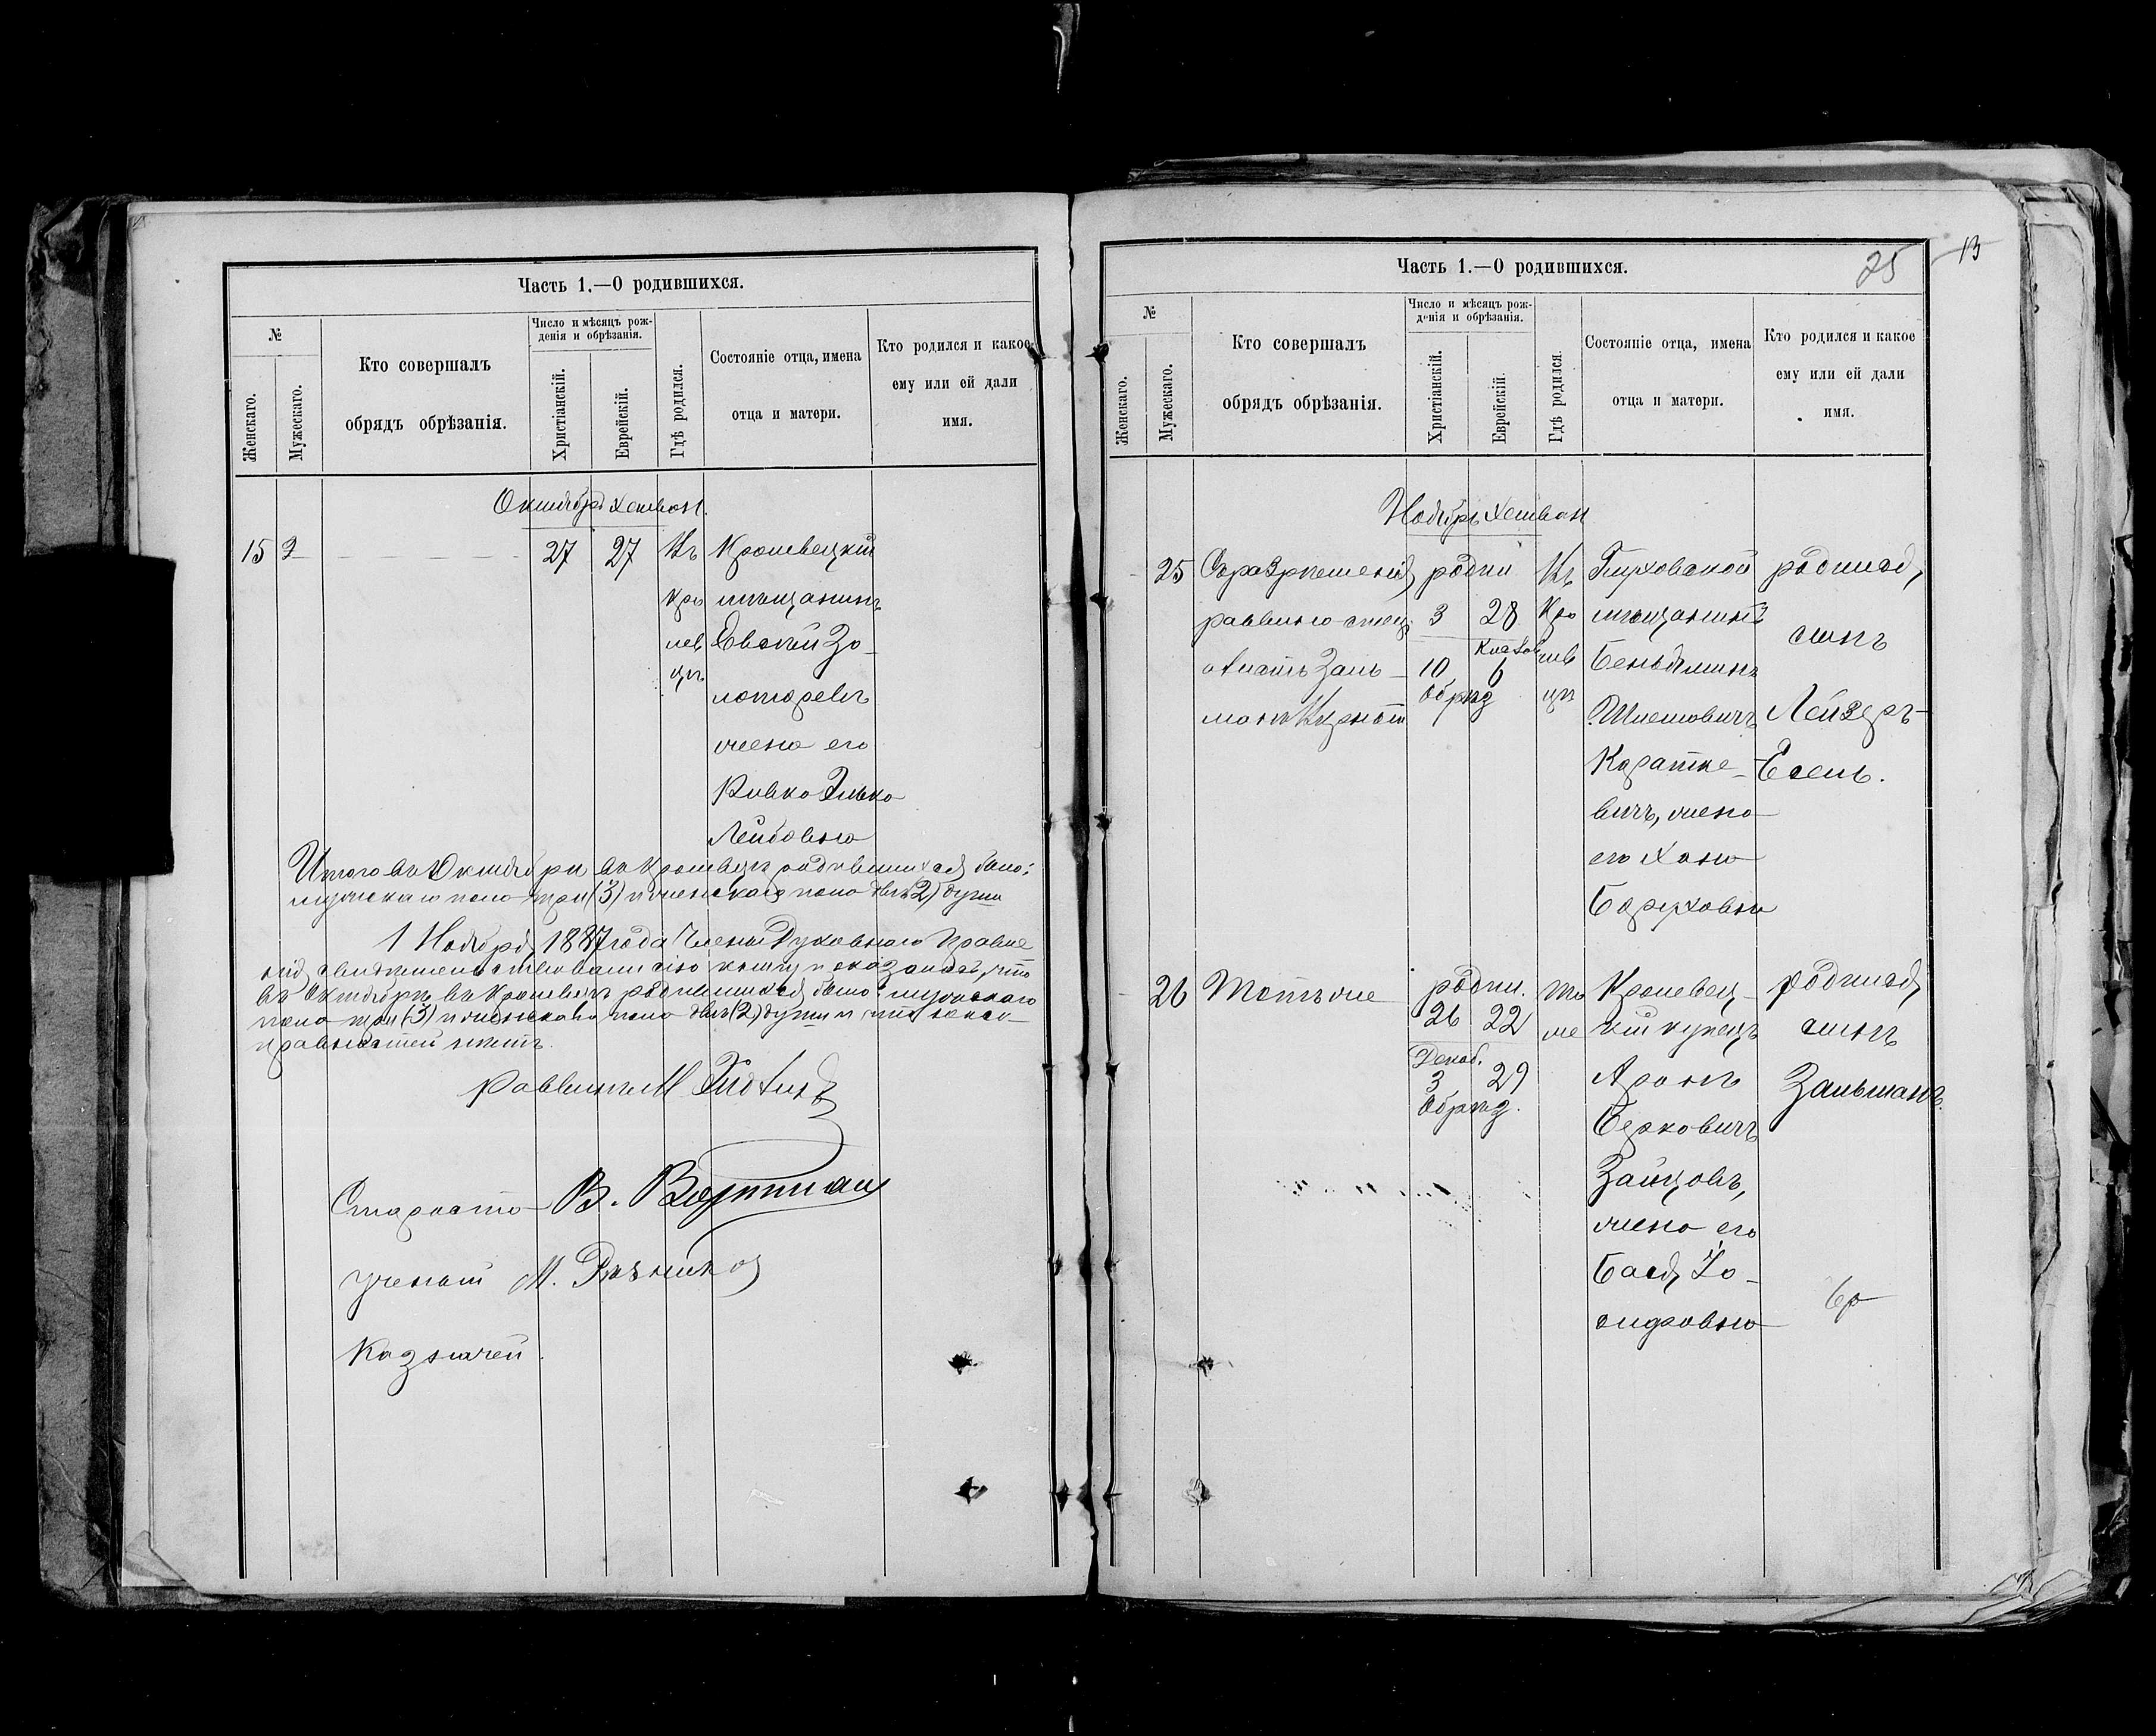 Часть 1.—О родившихся.
№
Женскаго.
Мужескаго.
Кто совершалъ
обрядъ обрѣзанія.
Число и мѣсяцъ рож-
денія и обрѣзанія.
Христіанскій.
Еврейскій.
Гдѣ родился.
Состояніе отца, имена
отца и матери.
Кто родился и какое
ему или ей дали
имя.
Октябрь Хешван.
15 27 27 Въ Кролевецкій
Кро мѣщанинъ
лев Евсей Зо-
цѣ лоторевъ
жена его
Ривка Элька
Лейбовна
Итого въ Октябрѣ въ Кролевцѣ родившихся было:
мужскаго пола три (3) и женскаго пола двѣ (2) души
1 Ноября 1887 года Члены Духовнаго Правле
нія свидѣтельствовали сію книгу и оказалось, что
въ Октябрѣ въ Кролевцѣ родившихся было: мужскаго
пола три (3) и женскаго пола двѣ (2) души и что
правностей нѣтъ.
Раввинъ М.
Староста В.
Ученый М. Рѣзников
Казначей
Часть 1.—О родившихся.
25
13
№
Женскаго.
Мужескаго.
Кто совершалъ
обрядъ обрѣзанія.
Число и мѣсяцъ рож-
денія и обрѣзанія.
Христіанскій.
Еврейскій.
Гдѣ родился.
Состояніе отца, имена
отца и матери.
Кто родился и какое
ему или ей дали
имя.
Ноябрь Хешван
25 Съ разрѣшенія родил Въ Глуховской родился,
раввина отец 3 28 Кро мѣщанинъ сынъ
Заль- 10 Кислов 6 лев Беньяминъ
манъ обрѣз цѣ Шлемовичъ Лейзеръ-
Каратке- Есель.
вичъ, жена
его Хана
Боруховна
26 Тотъ же родил. То Кролевец- родился
26 22 же кій купецъ сынъ
Декаб.
3 29 Аронъ Зальманъ.
обрѣз. Берковичъ
Зайцовъ,
жена его
Бася